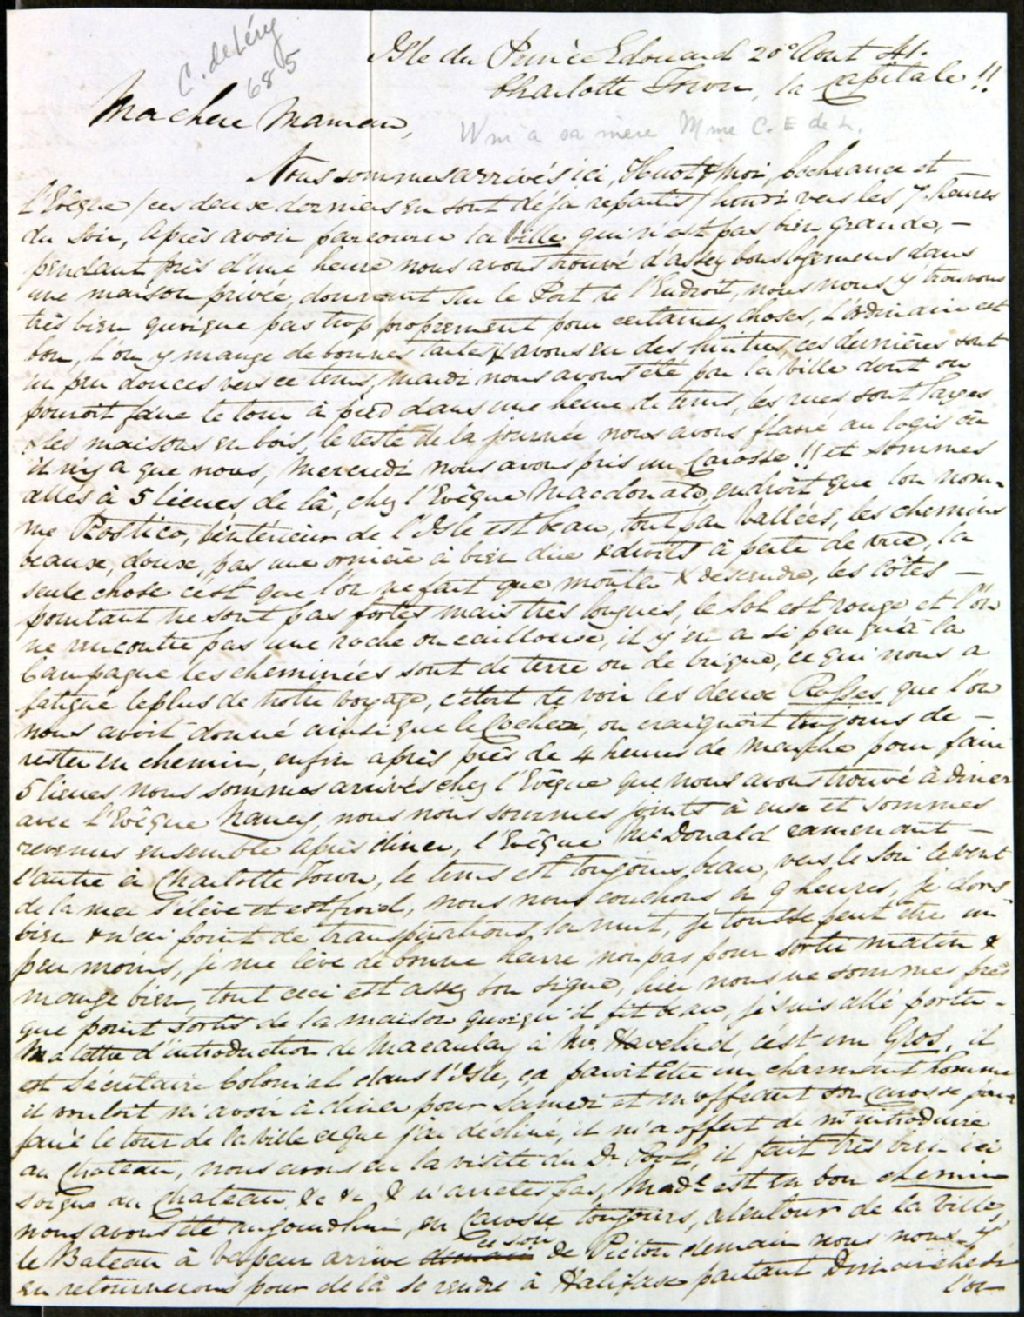 C. de Léry
685
Isle du Prince Edouard 20e Aout 41.
Charlotte Town, la Capitale !!
Ma chere Maman,
Wm à sa mère Mme C. E de L.
Nous sommes arrivés ici, & moi, et
l'Evêque (ces deux derniers en sont déja repartis) lundi vers les 7 heures
du Soir, Après avoir parcouru la Ville, qui n'est pas bien grande, –
pendant près d'une heure nous avons trouvé d'assez bons logemens dans
une maison privée, donnant sur le Port de l'Endroit, nous nous y trouvons
très bien quoique pas trop proprement pour certaines choses, L'ordinaire est
bon, l'on y mange de bonnes tartes & avons eu des huitres, ces dernières sont
un peu douces vers ce tems, Mardi nous avons été par la ville dont on
pouroit faire le tour à pied dans une heure de tems, les rues sont larges
& les maisons en bois, le reste de la journée nous avons flané au logis où
il n'y a que nous, Mercredi nous avons pris un Carosse !! et sommes
allés à 5 lieues de là, chez l'Evêque Macdonald, endroit que l'on nom-
me Rostico, l'intérieur de l'Isle est beau, tout par Vallées, les chemins
beaux, doux, pas une ornière à bien dire & droits à perte de vue, la
seule chose c'est que l'on ne fait que monter & descendre, les côtes –
pourtant ne sont pas fortes mais très longues, le Sol est rouge et l'on
ne rencontre pas une roche ou caillouxe, il y'en a si peu qu'à la
Campagne les cheminées sont de terre ou de brique, ce qui nous a
fatigué le plus de notre voyage, c'étoit de voir les deux Rosses que l'on
nous avoit donné ainsi que le Cocher, on craignoit toujours de –
rester en chemin, enfin après près de 4 heures de marche pour faire
5 lieues nous sommes arrivés chez l'Evêque que nous avons trouvé à diner
avec l'Evêque, nous nous sommes joints à eux et sommes
revenus ensemble après diner, l'Evêque McDonald ramenant –
l'autre à Charlotte Town, le tems est toujours beau, vers le soir le vent
de la mer s'élève et est froid, nous nous couchons à 9 heures, je dors
bien & n'ai point de transpirations la nuit, je tousse peut être un
peu moins, je me lève de bonne heure non pas pour sortir matin &
mange bien, tout ceci est assez bon signe, hier nous ne sommes près
que point sortis de la maison quoiqu'il fit beau, je suis allé porter –
Ma lettre d'introduction de Macaulay à Mr., c'est un Gros, il
est Secrétaire Colonial dans l'Isle, ça paroit être un charmant homme
il vouloit m'avoir à diner pour Samedi et m'offrant son Carosse pour
faire le tour de la ville ce que j'ai décliné, il m'a offert de m'introduire
au Chateau, nous avons eu la visite du Dr, il fait très bien ici
soigne au Chateau &c &c & n'arrêtes pas, Made est en bon chemin
nous avons été aujourdhui, en Carosse toujours, alentour de la ville,
le Bateau à Vapeur arrive ce soir de Pictou demain nous nous y
en retournerons pour de là se rendre à Halifax partant Dimanche
l'on